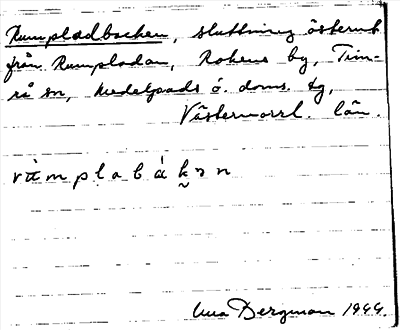 Rumpladbacken, sluttning österut
från Rumpladan, Rokens by, Tim-
rå sn, Medelpads ö. doms. tg,
Västernorrl. län.
Una Bergman 1944.